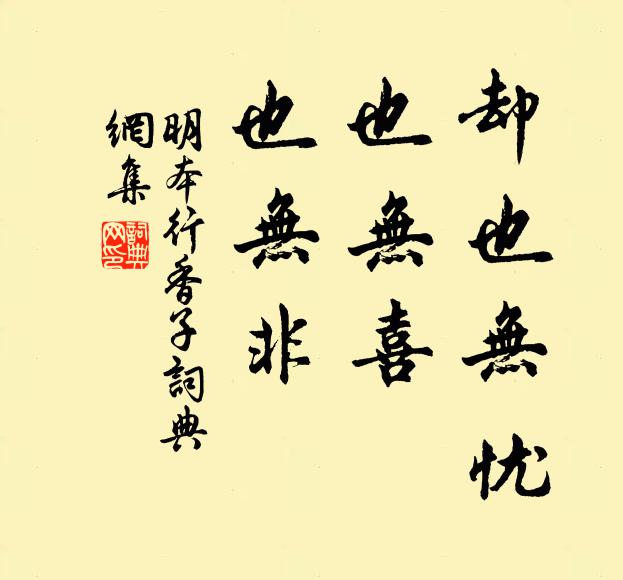 却也無忧
也無喜
也無非
明本行香子詞典
網集
詞典
网印